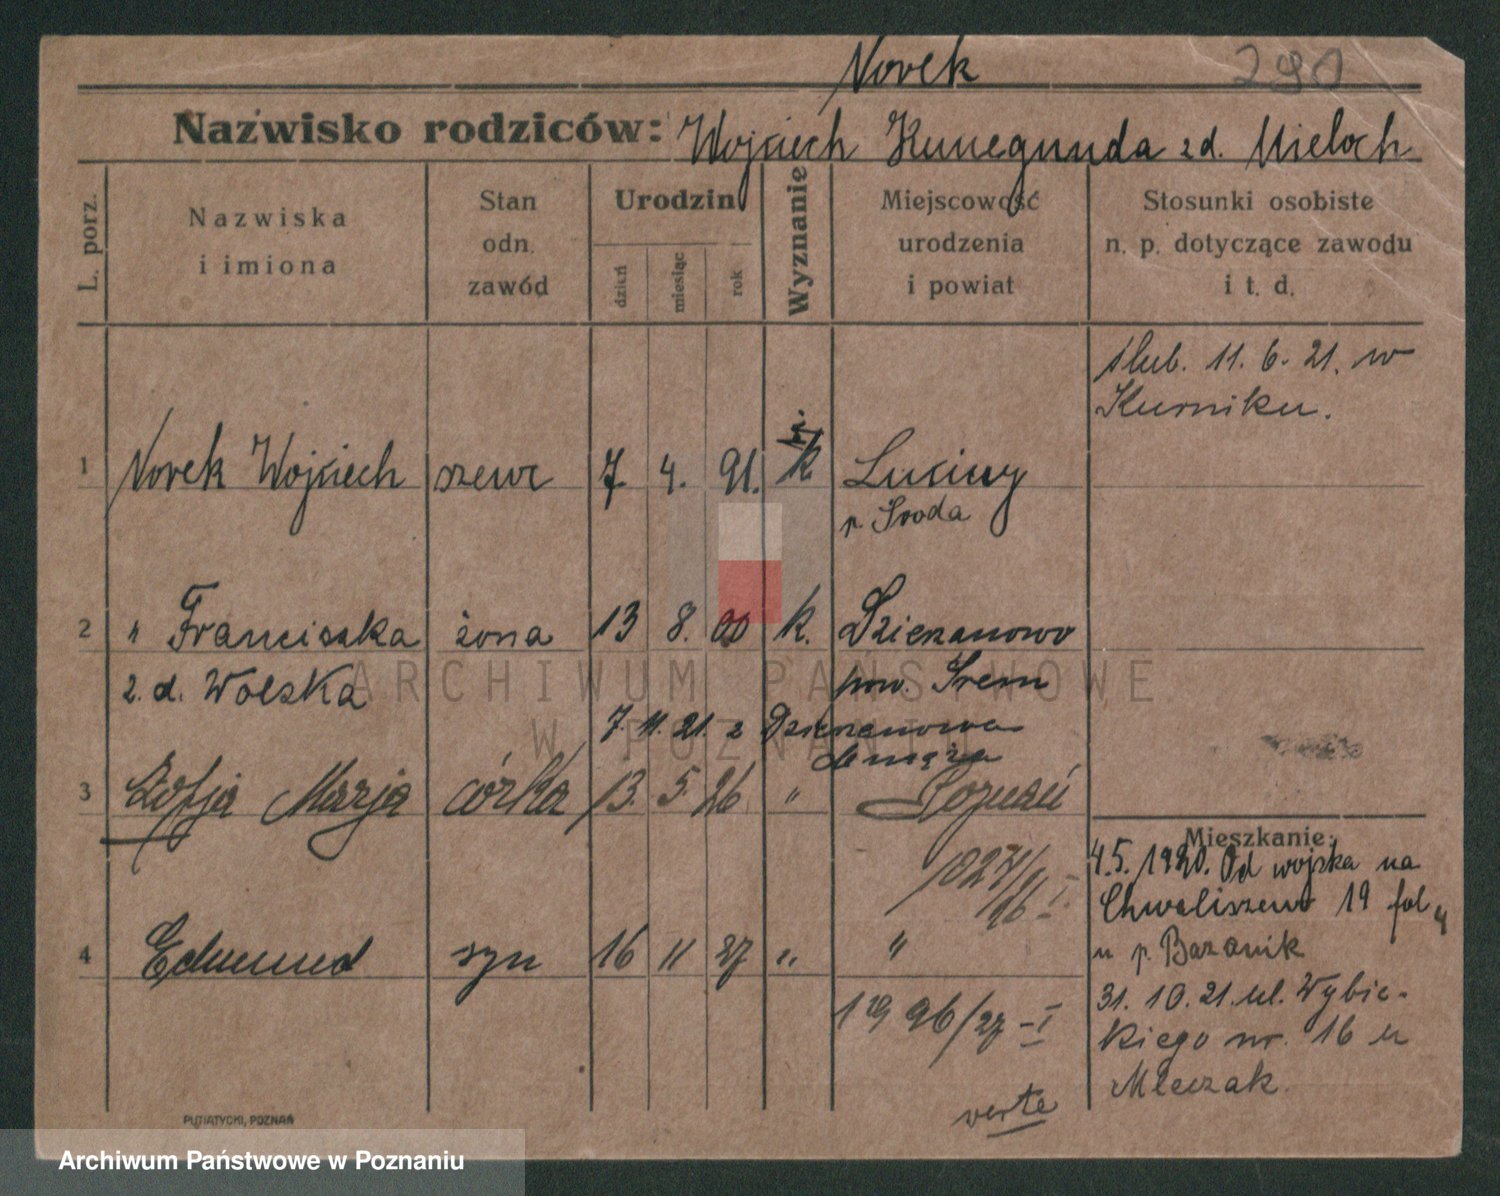 Norek
290
Nazwisko rodziców: Wojciech Kunegunda z d. Mieloch
L. porz.
Nazwiska i imiona
Stan odn. zawód
Urodzin
dzień miesiąc rok
Wyznanie
Miejscowość urodzenia i powiat
Stosunki osobiste n. p. dotyczące zawodu i t. d.
ślub. 11. 6. 21. w
Kurniku.
1 Norek Wojciech szewc 7 4. 91. k
p. Środa
2 " Franciszka żona 13 8. 00 k.
z. d. Wolska pow. Śrem
7. 11. 21. z Dzierzanowa
do męża
3 Zofja Marja córka 13. 5. 26 " Poznań
Mieszkanie:
4. 5. 1920. Od wojska na
Chwaliszewo 19
u p. Bazanik
4 Edmund syn 16 11 27 " "
31. 10. 21. ul. Wybic-
kiego nr. 16 u
Mleczak.
1996/27 - I
verte
PUTIATYCKI, POZNAŃ
ARCHIWUM PAŃSTWOWE
W POZNANIU
Archiwum Państwowe w Poznaniu